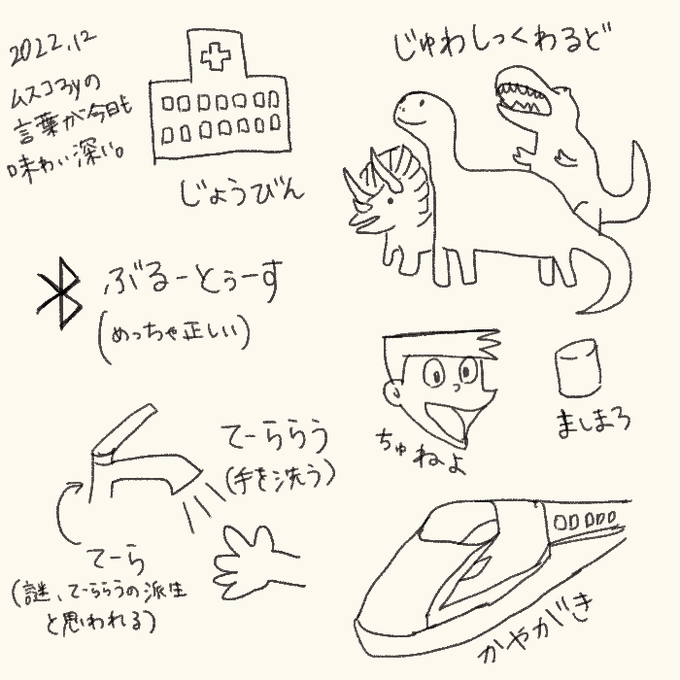 2022.12
ムスコ3yの
言葉が今日も
味わい深い。
じょうびん
じゅわしっくわるど
ぶるーとぅーす
(めっちゃ正しい)
ちゅねよ
ましまろ
てーららう
(手を洗う)
てーら
(謎、てーららうの派生
と思われる)
かやがき